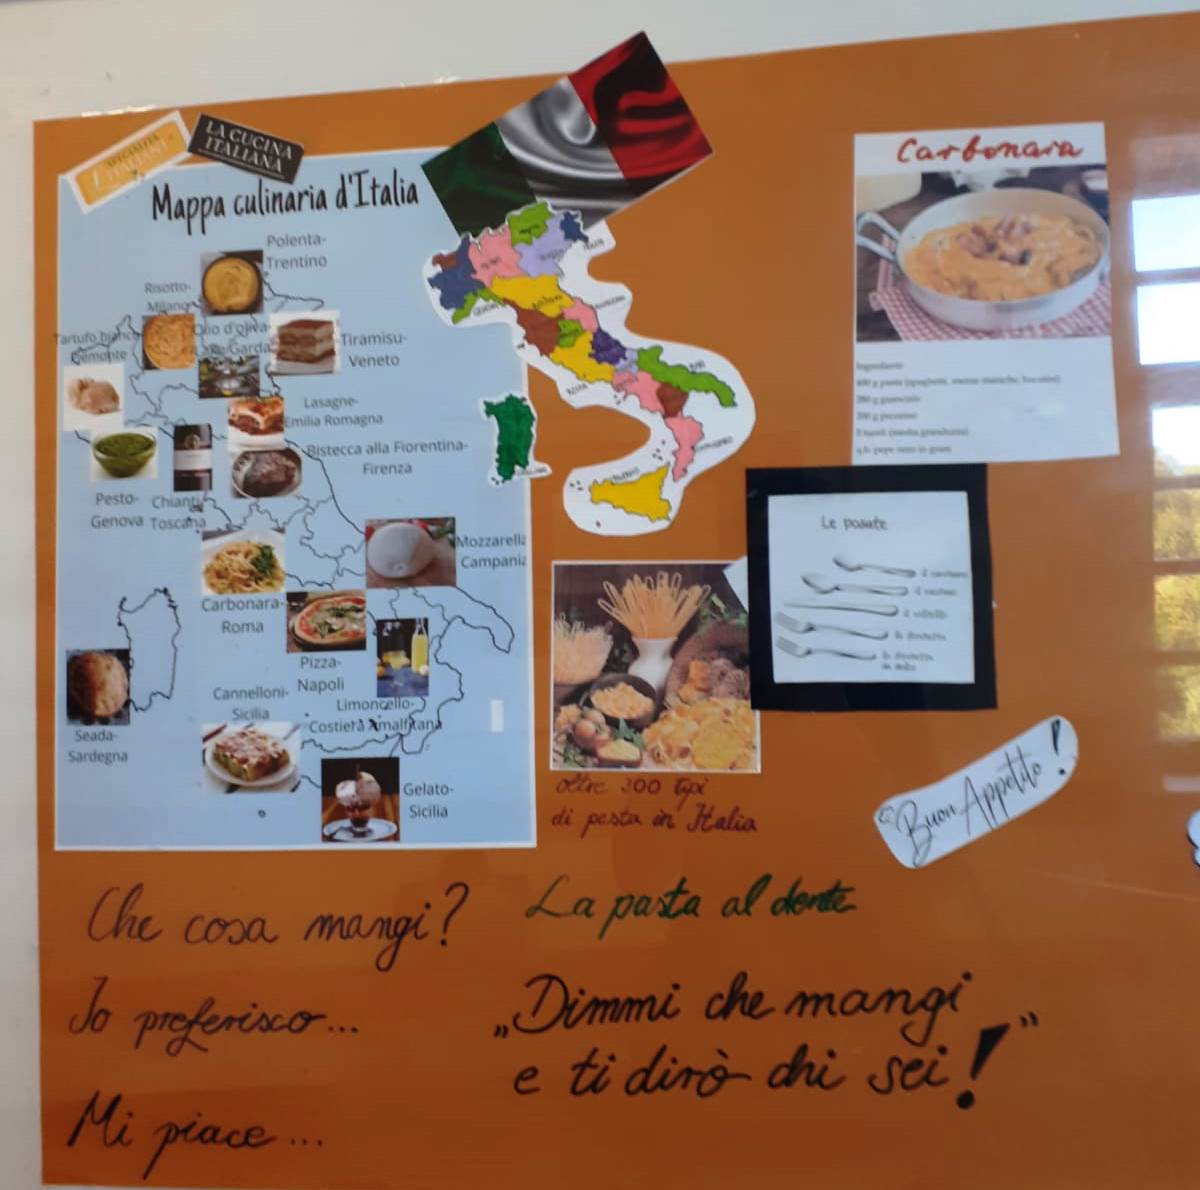 SPECIALITÀ
LA CUCINA
ITALIANA
Mappa culinaria d'Italia
Polenta-
Trentino
Risotto-
Milano
Tartufo bianco
Piemonte
Olio d'oliva-
Garda
Tiramisu-
Veneto
Lasagne-
Emilia Romagna
Bistecca alla Fiorentina-
Firenze
Pesto-
Genova
Chianti
Toscana
Mozzarella
Campania
Carbonara-
Roma
Pizza-
Napoli
Limoncello-
Costiera Amalfitana
Cannelloni-
Sicilia
Seada-
Sardegna
Gelato-
Sicilia
Carbonara
Ingredienti
400 g pasta
200 g guanciale
200 g pecorino
q.b. pepe nero in grani
Le posate
il coltello
la forchetta
oltre 300 tipi
di pasta in Italia
Buon Appetito!
Che cosa mangi?
Io preferisco...
Mi piace...
La pasta al dente
„Dimmi che mangi
e ti dirò chi sei!”